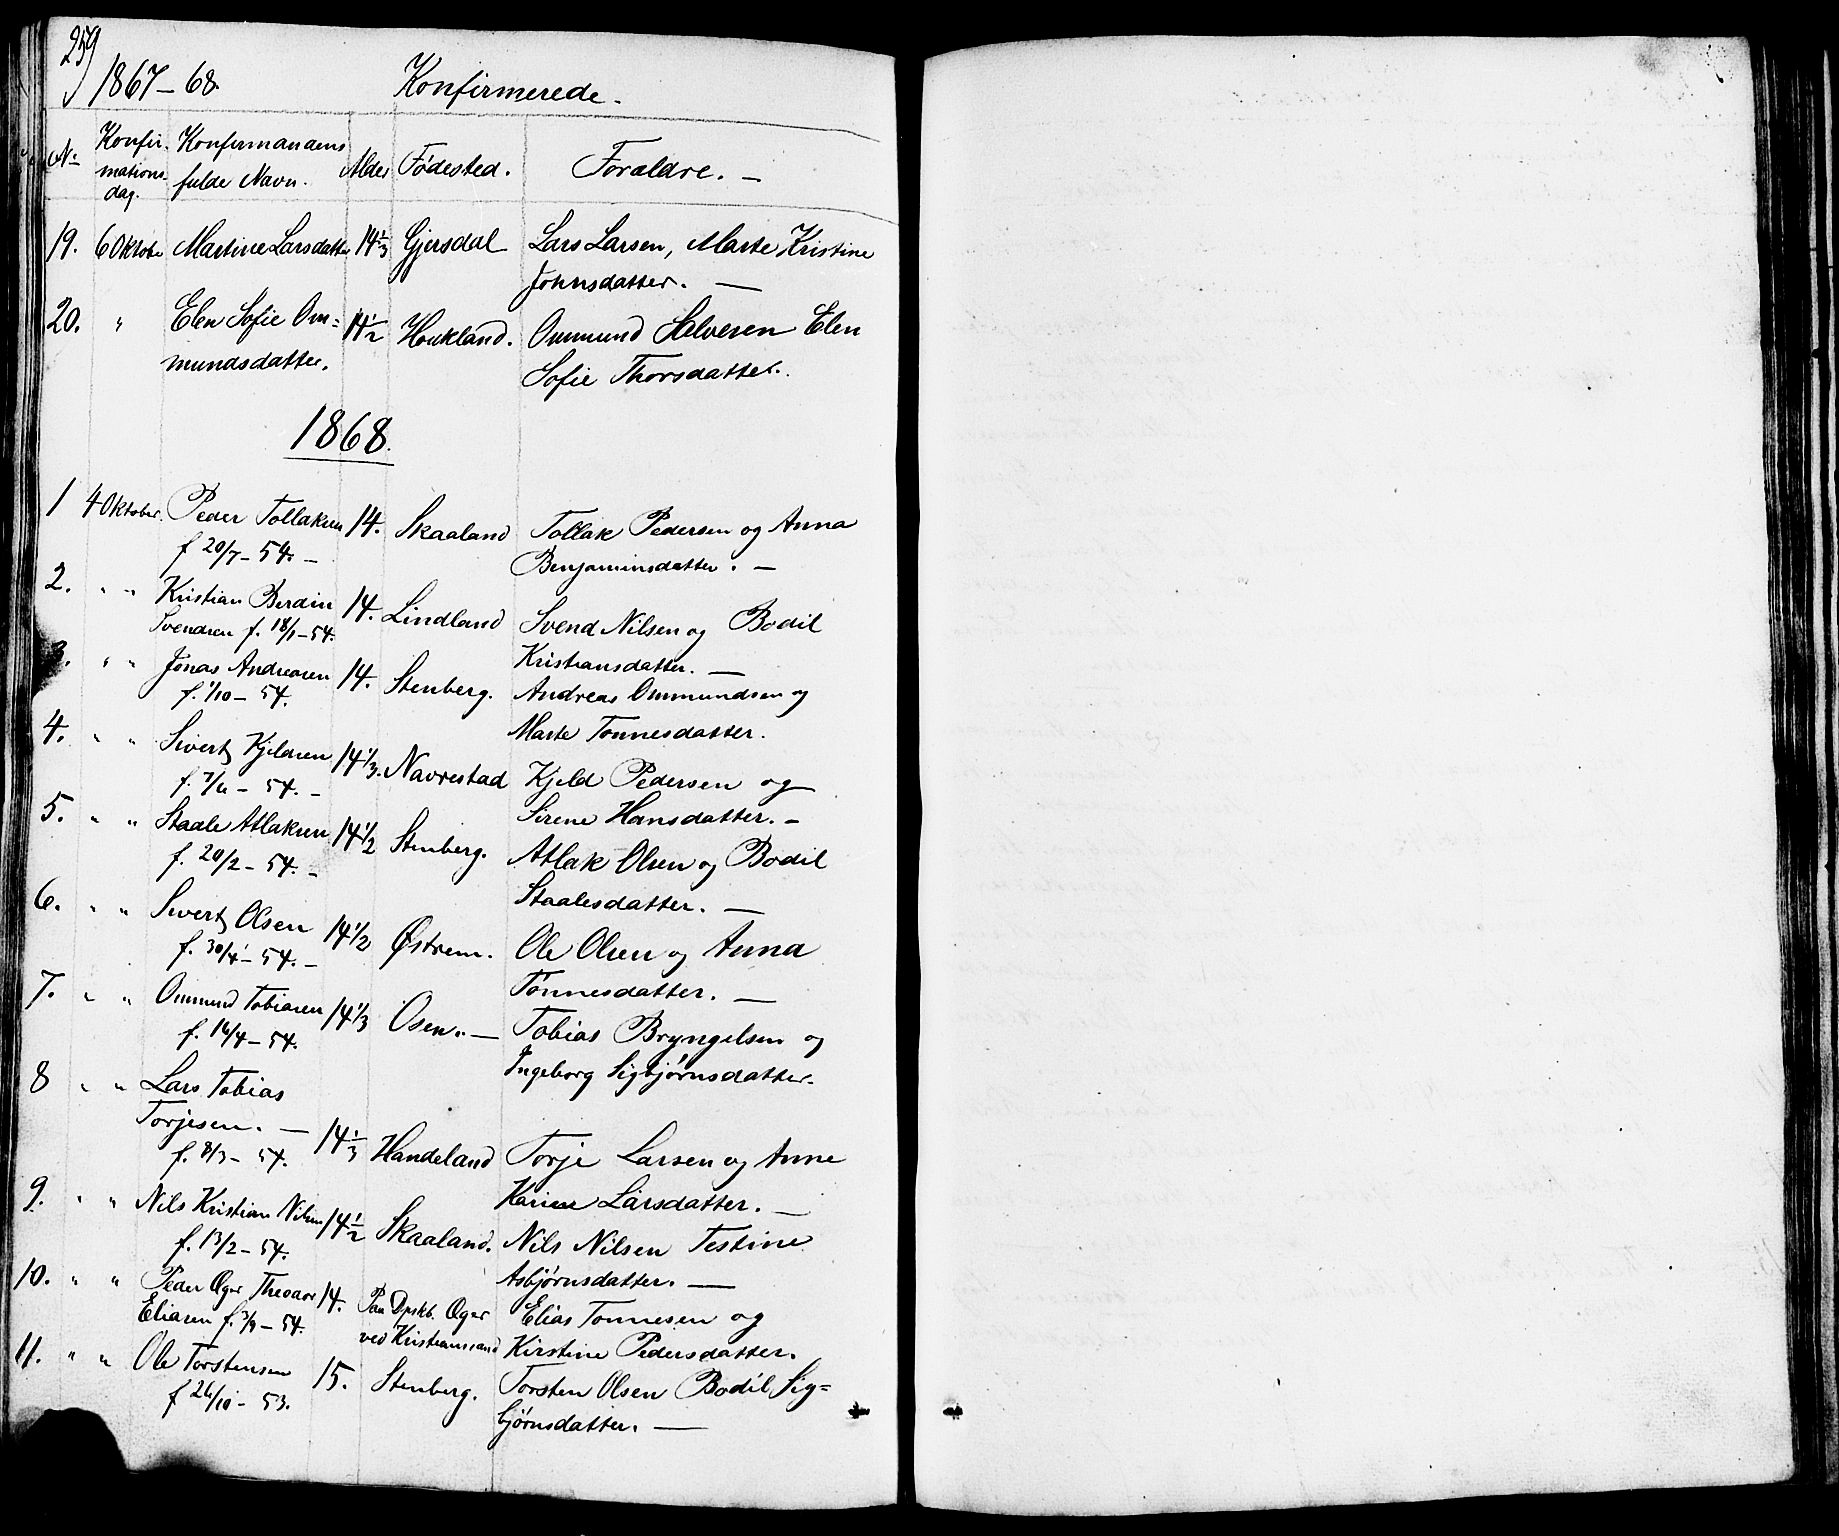 259
1867–68. Konfirmerede.
No Konfirmations dag. Konfirmandens fulde Navn. Alder Fødested. Forældre. —
19. 6 Oktober Martine Larsdatter 14 1/3 Gjersdal Lars Larsen, Marte Kristine
Johnsdatter. —
20. " Elen Sofie Om= 14 1/2 Houkland. Ommund Salvesen Elen
mundsdatter. Sofie Thorsdatter.
1868.
1 4 Oktober. Peder Tollaksen 14. Skaaland Tollak Pedersen og Anna
f 20/7 – 54. – Benjaminsdatter. —
2. " " Kristian Berdin 14. Lindland Svend Nilsen og Bodil
Svendsen f. 18/1 – 54. Kristiansdatter. —
3. " " Jonas Andreasen 14. Stenberg. Andreas Ommundsen og
f. 1/10 – 54. Marte Tønnesdatter.
4. " " Sivert Kjeldsen 14 1/3. Navrestad Kjeld Pedersen og
f. 7/6 – 54. – Sirene Hansdatter. –
5. " " Staale Atlaksen 14 1/2 Stenberg. Atlak Olsen og Bodil
f. 20/2 – 54. – Staalesdatter. —
6. " " Sivert Olsen 14 1/2 Østrem. Ole Olsen og Anna
f. 30/4 – 54. – Tønnesdatter. —
7. " " Ommund Tobiasen 14 1/3 Osen. — Tobias Bryngelsen og
f. 16/4 – 54. Ingeborg Sigbjørnsdatter.
8 " " Lars Tobias
Torjesen. — 14 1/3 Handeland Torje Larsen og Anne
f. 8/3 – 54. Karine Larsdatter. —
9. " " Nils Kristian Nilsen 14 1/2 Skaaland. Nils Nilsen Testine
f. 13/2 – 54. Asbjørnsdatter. —
10. " " Peder Oger Theodor 14. Paa Dpskb. Oger Elias Tønnesen og
Eliasen f. 3/9 – 54. ved Kristianssand Kirstine Pedersdatter.
11. " " Ole Torstensen 15. Stenberg. Torsten Olsen Bodil Sig=
f 26/10 – 53. bjørnsdatter. —